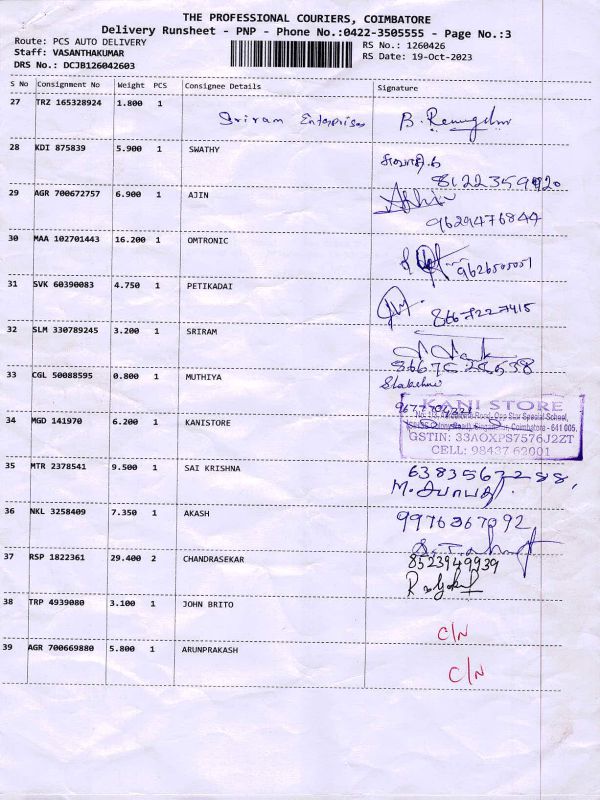 THE PROFESSIONAL COURIERS, COIMBATORE
Delivery Runsheet - PNP - Phone No.:0422-3505555 - Page No.:3
Route: PCS AUTO DELIVERY
Staff: VASANTHAKUMAR
DRS No.: DCJB126042603
RS No.: 1260426
RS Date: 19-Oct-2023
S No Consignment No Weight PCS Consignee Details Signature
27 TRZ 165328924 1.800 1 Sriram Enterprises
28 KDI 875839 5.900 1 SWATHY
29 AGR 700672757 6.900 1 AJIN
9629476844
30 MAA 102701443 16.200 1 OMTRONIC
31 SVK 60390083 4.750 1 PETIKADAI
8667227415
32 SLM 330789245 3.200 1 SRIRAM
33 CGL 50088595 0.800 1 MUTHIYA
34 MGD 141970 6.200 1 KANISTORE
KANI STORE
Opp Star Special School,
Coimbatore - 641 005.
GSTIN: 33AOXPS7576J2ZT
CELL: 98437 62001
35 MTR 2378541 9.500 1 SAI KRISHNA
6383567288,
36 NKL 3258409 7.350 1 AKASH
9976367092
37 RSP 1822361 29.400 2 CHANDRASEKAR
8523949939
38 TRP 4939080 3.100 1 JOHN BRITO
C/N
39 AGR 700669880 5.800 1 ARUNPRAKASH
C/N